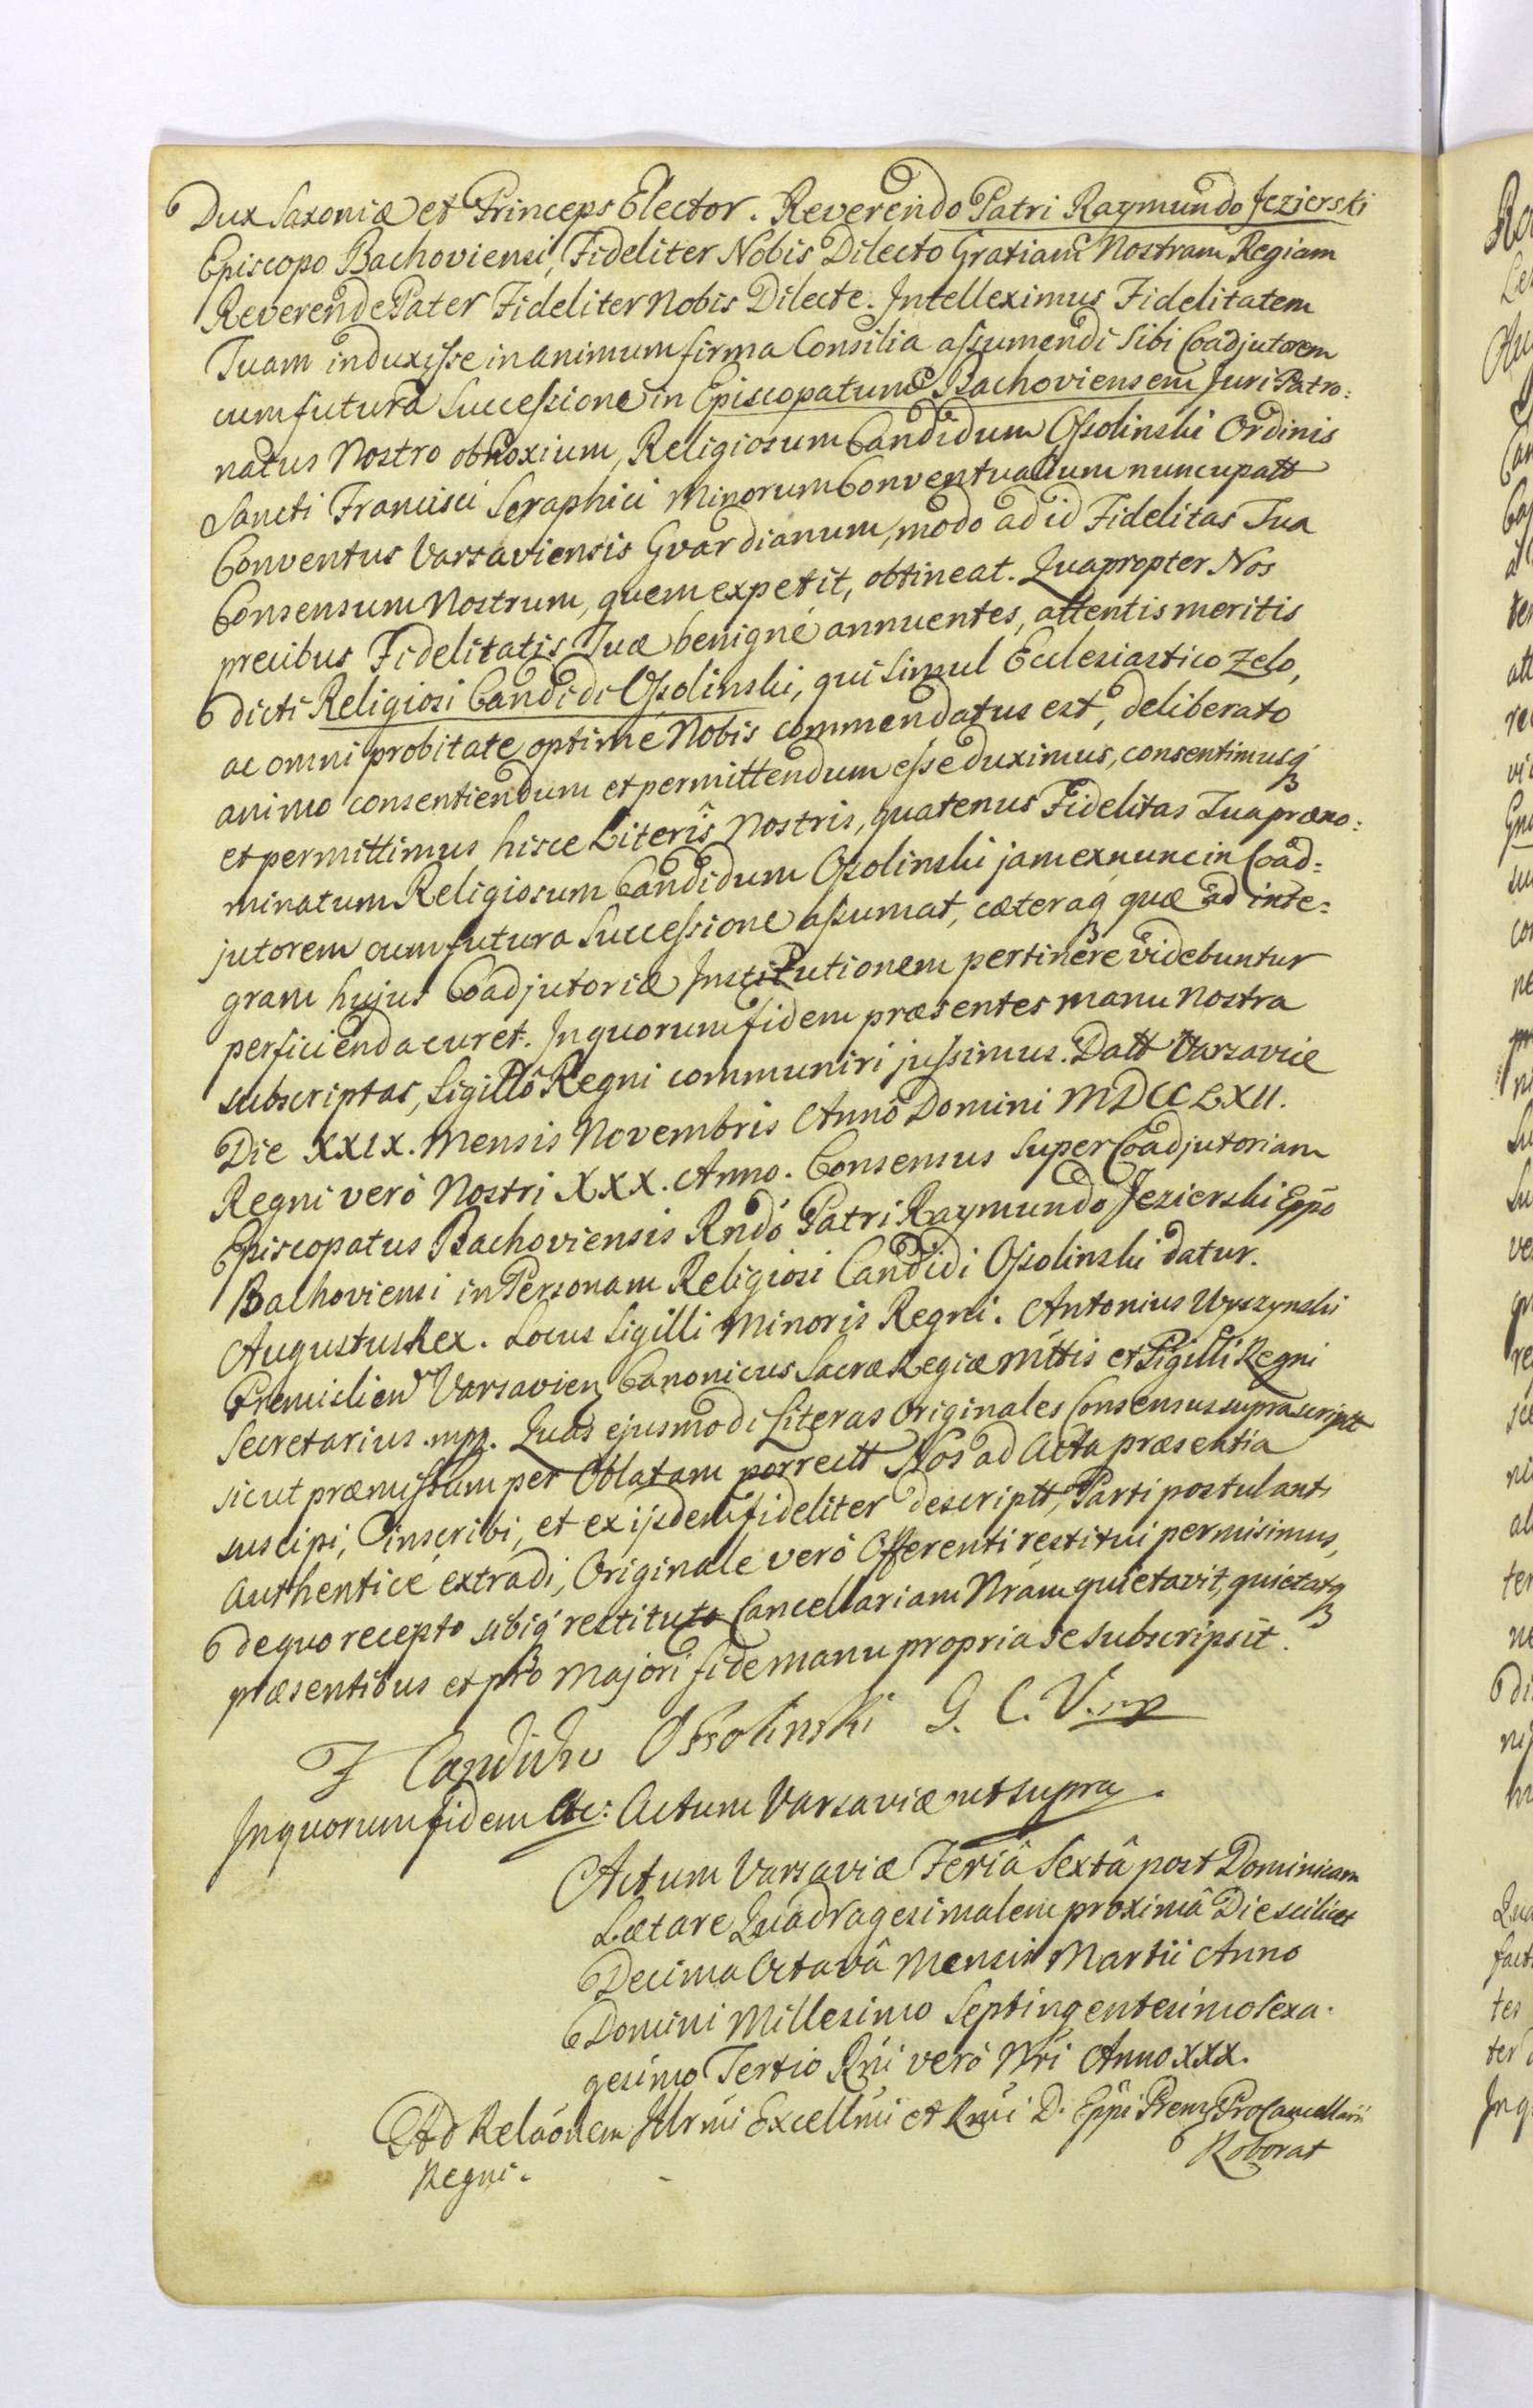 Dux Saxoniæ et Princeps Elector. Reverendo Patri Raymundo Jezierski
Episcopo Bachoviensi, Fideliter Nobis Dilecto Gratiam Nostram Regiam
Reverende Pater Fideliter Nobis Dilecte. Intelleximus Fidelitatem
Tuam induxisse in animum firma Consilia assumendi Sibi Coadjutorem
cum futura Successione in Episcopatum Bachoviensem Juri Patro:
natus Nostro obnoxium, Religiosum Candidum Ossolinski Ordinis
Sancti Francisci Seraphici Minorum Conventualium nuncupatt
Conventus Varsaviensis Gvardianum, modo ad id Fidelitas Tua
Consensum Nostrum, quem expetit, obtineat. Quapropter Nos
precibus Fidelitatis Tuæ benigné annuentes, attentis meritis
dicti Religiosi Candidi Ossolinski, qui simul Ecclesiastico Zelo,
ac omni probitate optimé Nobis commendatus est, deliberato
animo consentiendum et permittendum esse duximus, consentimusq
et permittimus hisce Literîs Nostris, quatenus Fidelitas Tua præno:
minatum Religiosum Candidum Ossolinski jam ex nunc in Coad:
jutorem cum futura Successione assumat, cæteraq quæ ad inte:
gram hujus Coadjutoriæ Institutionem pertinere videbuntur
perficienda curet. In quorum fidem præsentes manu Nostra
subscriptas, Sigillô Regni communiri jussimus. Datt Varsaviæ
Die XXIX. Mensis Novembris Annô Domini MDCCLXII.
Regni verò Nostri XXX. Anno. Consensus super Coadjutoriam
Episcopatus Bachoviensis Rndó Patri Raymundo Jezierski Eppó
Bachoviensi in Personam Religiosi Candidi Ossolinski datur.
Augustus Rex. Locus Sigilli Minoris Regni. Antonius Wyszynski
Premislien Varsavien Canonicus Sacræ Regiæ Mttis et Sigilli Regni
Secretarius mpp. Quas ejusmodi Literas Originales Consensus suprascriptt
sicut præmissum per Oblatam porrectt Nos ad Acta præsentia
suscipi, inscribi, et ex ijsdem fideliter descriptt, Parti postulanti
Authenticé extradi, Originale verò Offerenti restitui permisimus,
de quo recepto sibiq restituto Cancellariam Nram quietavit, quietatq
præsentibus et pro majori fide manu propria se subscripsit.
F Candidus Ossolinski G. C. V. mp
In quorum fidem etc: Actum Varsaviæ ut supra.
Actum Varsaviæ Feriâ Sextâ post Dominicam
Lætare Quadragesimalem proximâ Die scilicet
Decima Octavâ Mensis Martii Anno
Domini Millesimo Septingentesimo Sexa-
gesimo Tertio Rni verò Nri Anno XXX.
Ad Relaónem Illrmi Excellmi et Rmi D. Eppi Prem Procancellarii
Regni.
Roborat